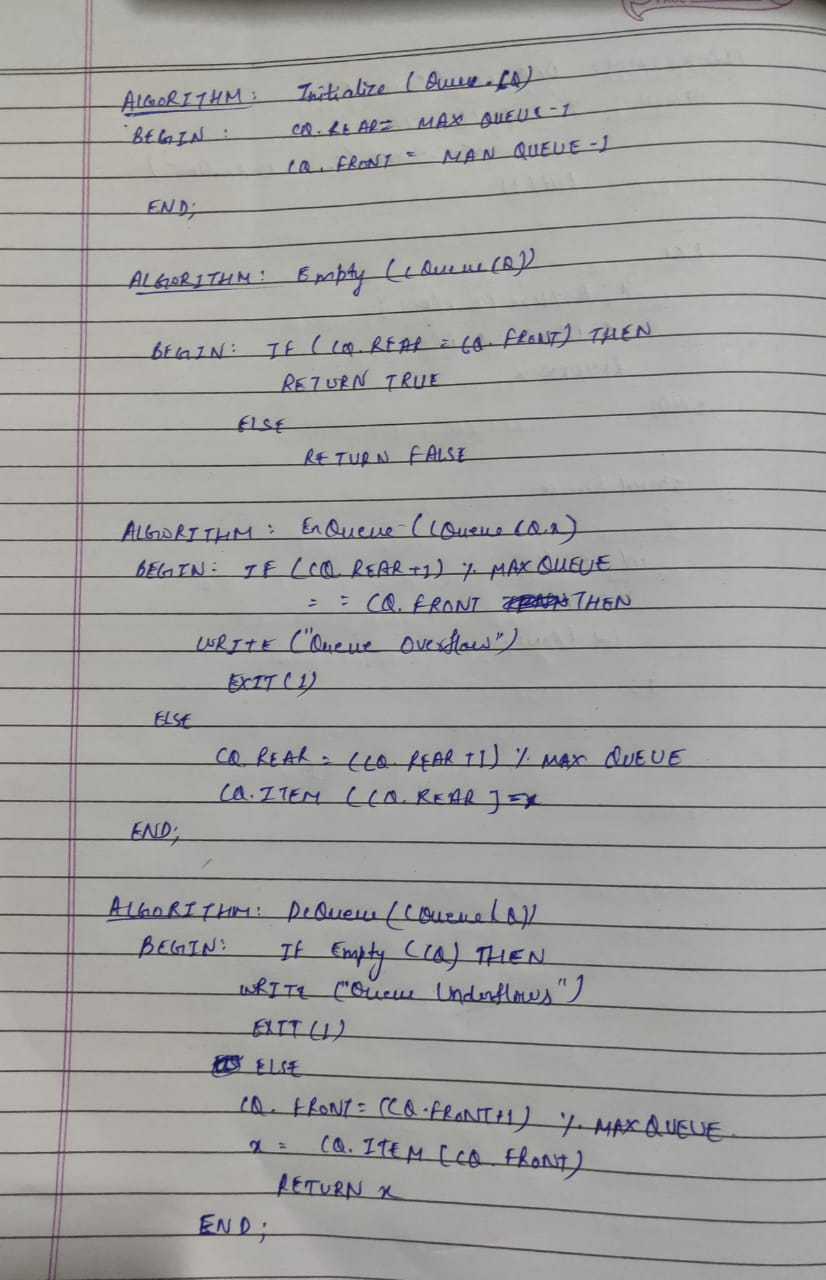 ALGORITHM: Initialize (Queue CQ)
BEGIN: CQ.REAR= MAX QUEUE-1
CQ. FRONT = MAN QUEUE-1
END;
ALGORITHM: Empty (CQueue CQ))
BEGIN: IF (CQ.REAR = CQ. FRONT) THEN
RETURN TRUE
ELSE
RETURN FALSE
ALGORITHM: EnQueue (CQueue CQ,x)
BEGIN: IF (CQ. REAR+1) % MAX QUEUE
= = CQ. FRONT THEN
WRITE ("Queue Overflow")
EXIT (1)
ELSE
CQ REAR = (CQ. REAR +1) % MAX QUEUE
CQ. ITEM (CQ. REAR ] = x
END;
ALGORITHM: DeQueue (CQueue CQ))
BEGIN: If Empty (CQ) THEN
WRITE ("Queue Underflows")
EXIT (1)
ELSE
CQ. FRONT = (CQ.FRONT+1) % MAX QUEUE.
x = CQ. ITEM [CQ. FRONT)
RETURN x
END;